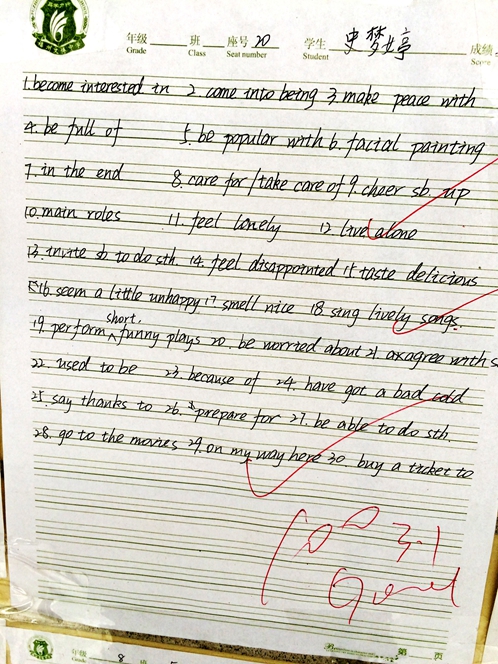 年级 班 座号 20 学生 史梦婷 成绩
Grade Class Seat number Student Score
1. become interested in 2. come into being 3. make peace with
4. be full of 5. be popular with 6. facial painting
7. in the end 8. care for / take care of 9. cheer sb. up
10. main roles 11. feel lonely 12. live alone
13. invite sb to do sth. 14. feel disappointed 15 taste delicious
16. seem a little unhappy 17 smell nice 18. sing lively songs.
short,
19. perform ^ funny plays 20. be worried about 21. agree with s
22. used to be 23. because of 24. have got a bad cold
25. say thanks to 26. prepare for 27. be able to do sth.
28. go to the movies 29. on my way here 30. buy a ticket to
100 3.1
Good
第 页
年级 8 班
Grade